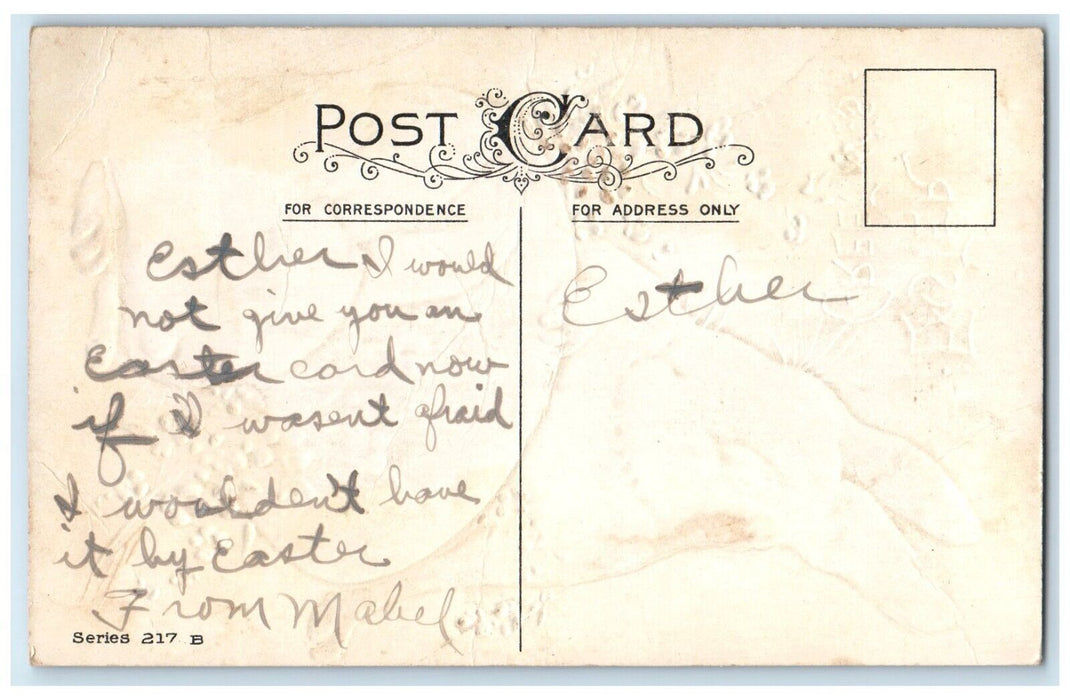 POST CARD
FOR CORRESPONDENCE
FOR ADDRESS ONLY
Esther I would
not give you an
Easter card now
if I wasent afraid
I woulden't have
it by Easter
From Mabel
Esther
Series 217 B